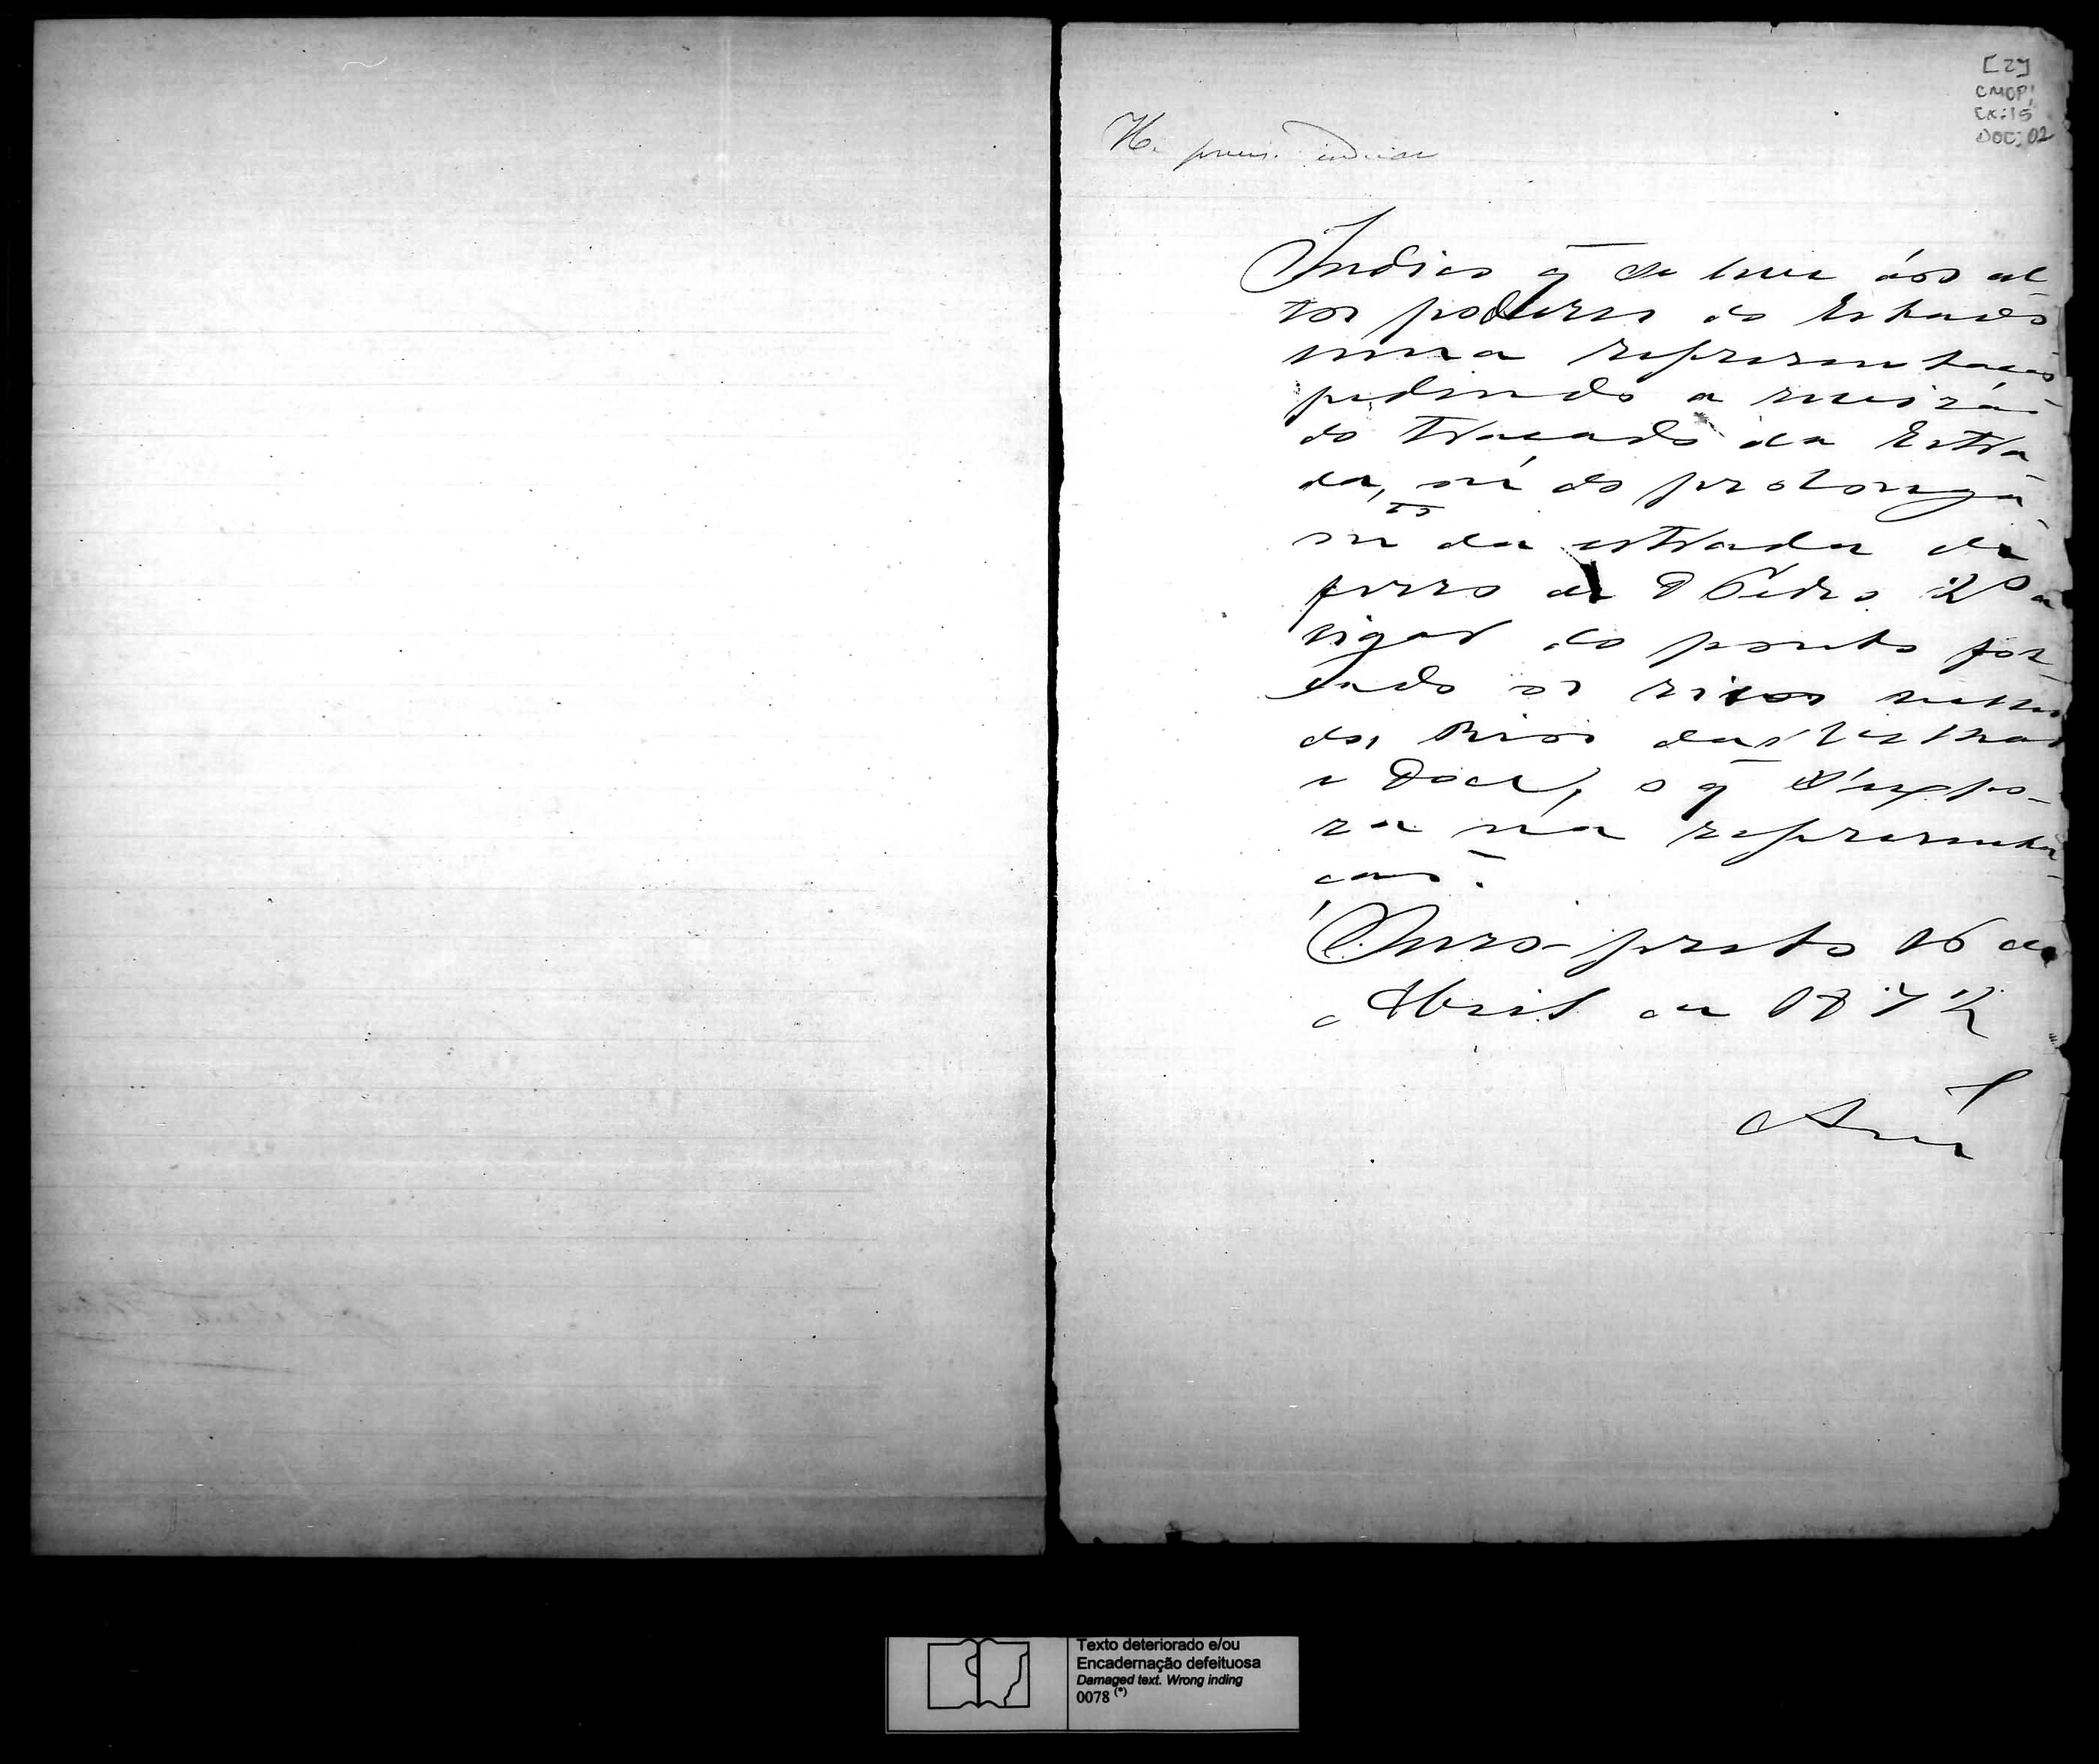 [27]
CMOP,
CX:15
DOC: 02
Indico q̄ se leve áos al
tos poderes do Estado
uma representação
pedindo a revisão
do traçado da Estra
da, do prolonga
to da estrada de
ferro de D Pedro 2º a
vigar do ponto for
çado os rios
das Velhas
e Doce, o q̄
rá na representa
ção.
Ouro-preto 16 de
Abril de 1872
Texto deteriorado e/ou
Encadernação defeituosa
Damaged text. Wrong inding
0078 (*)